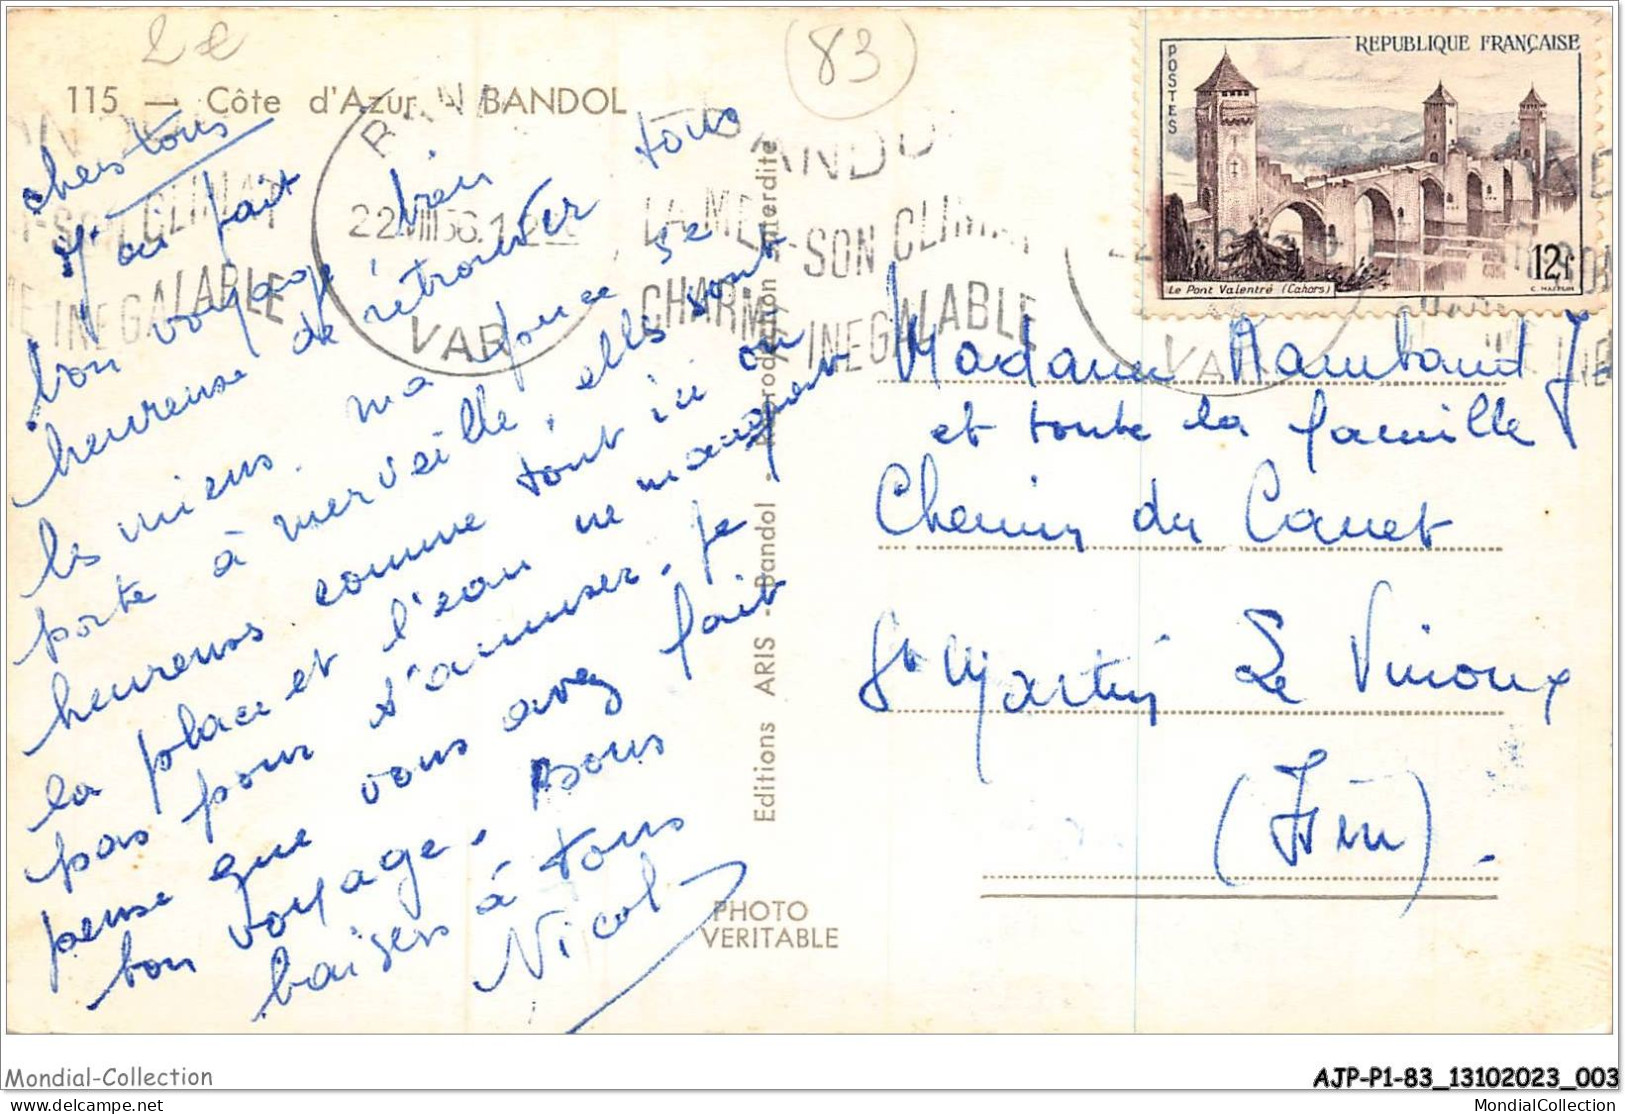 2€
83
115 — Côte d'Azur BANDOL
chers tous
J'ai fait bien
bon voyage
heureuse de retrouver tous
les miens. ma se
porte à merveille, elles sont
heureuses comme tout ici on
la place et l'eau ne manquent
pas pour s'amuser. Je
pense que vous avez fait
bon voyage. Bons
baisers à tous
Nicol
Editions ARIS - Bandol - Reproduction Interdite
PHOTO
VERITABLE
BANDOL
VAR
22 VIII 56
BANDOL
LA MER - SON CLIMAT
CHARME INEGALABLE
SON CLIMAT
INEGALABLE
VAR
POSTES
REPUBLIQUE FRANÇAISE
12f
Le Pont Valentré (Cahors)
C. MAZELIN
Madame Rambaud J
et toute la famille
Chemin du Canet
St Martin Le Vinoux
(Isère).
Mondial-Collection
AJP-P1-83_13102023_003
delcampe.net
MondialCollection